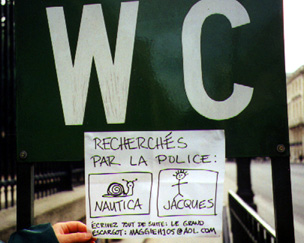 WC
RECHERCHÉS
PAR LA POLICE:
NAUTICA
JACQUES
ÉCRIVEZ TOUT DE SUITE: LE GRAND
ESCARGOT: MAGGIEH105@AOL.COM